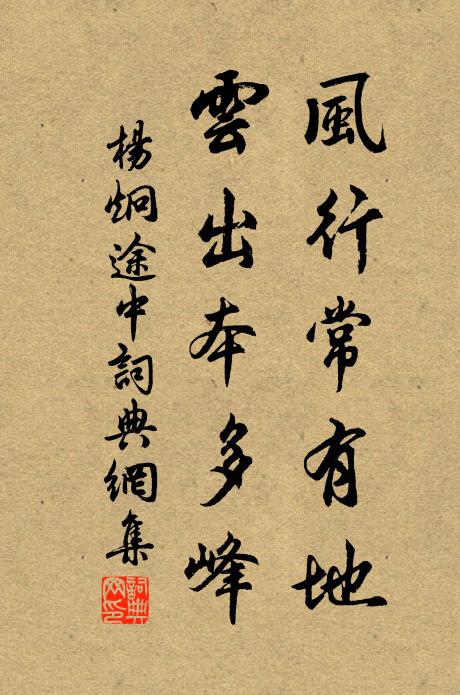 風行常有地
雲出本多峰
楊炯途中詞典網集
詞典網印